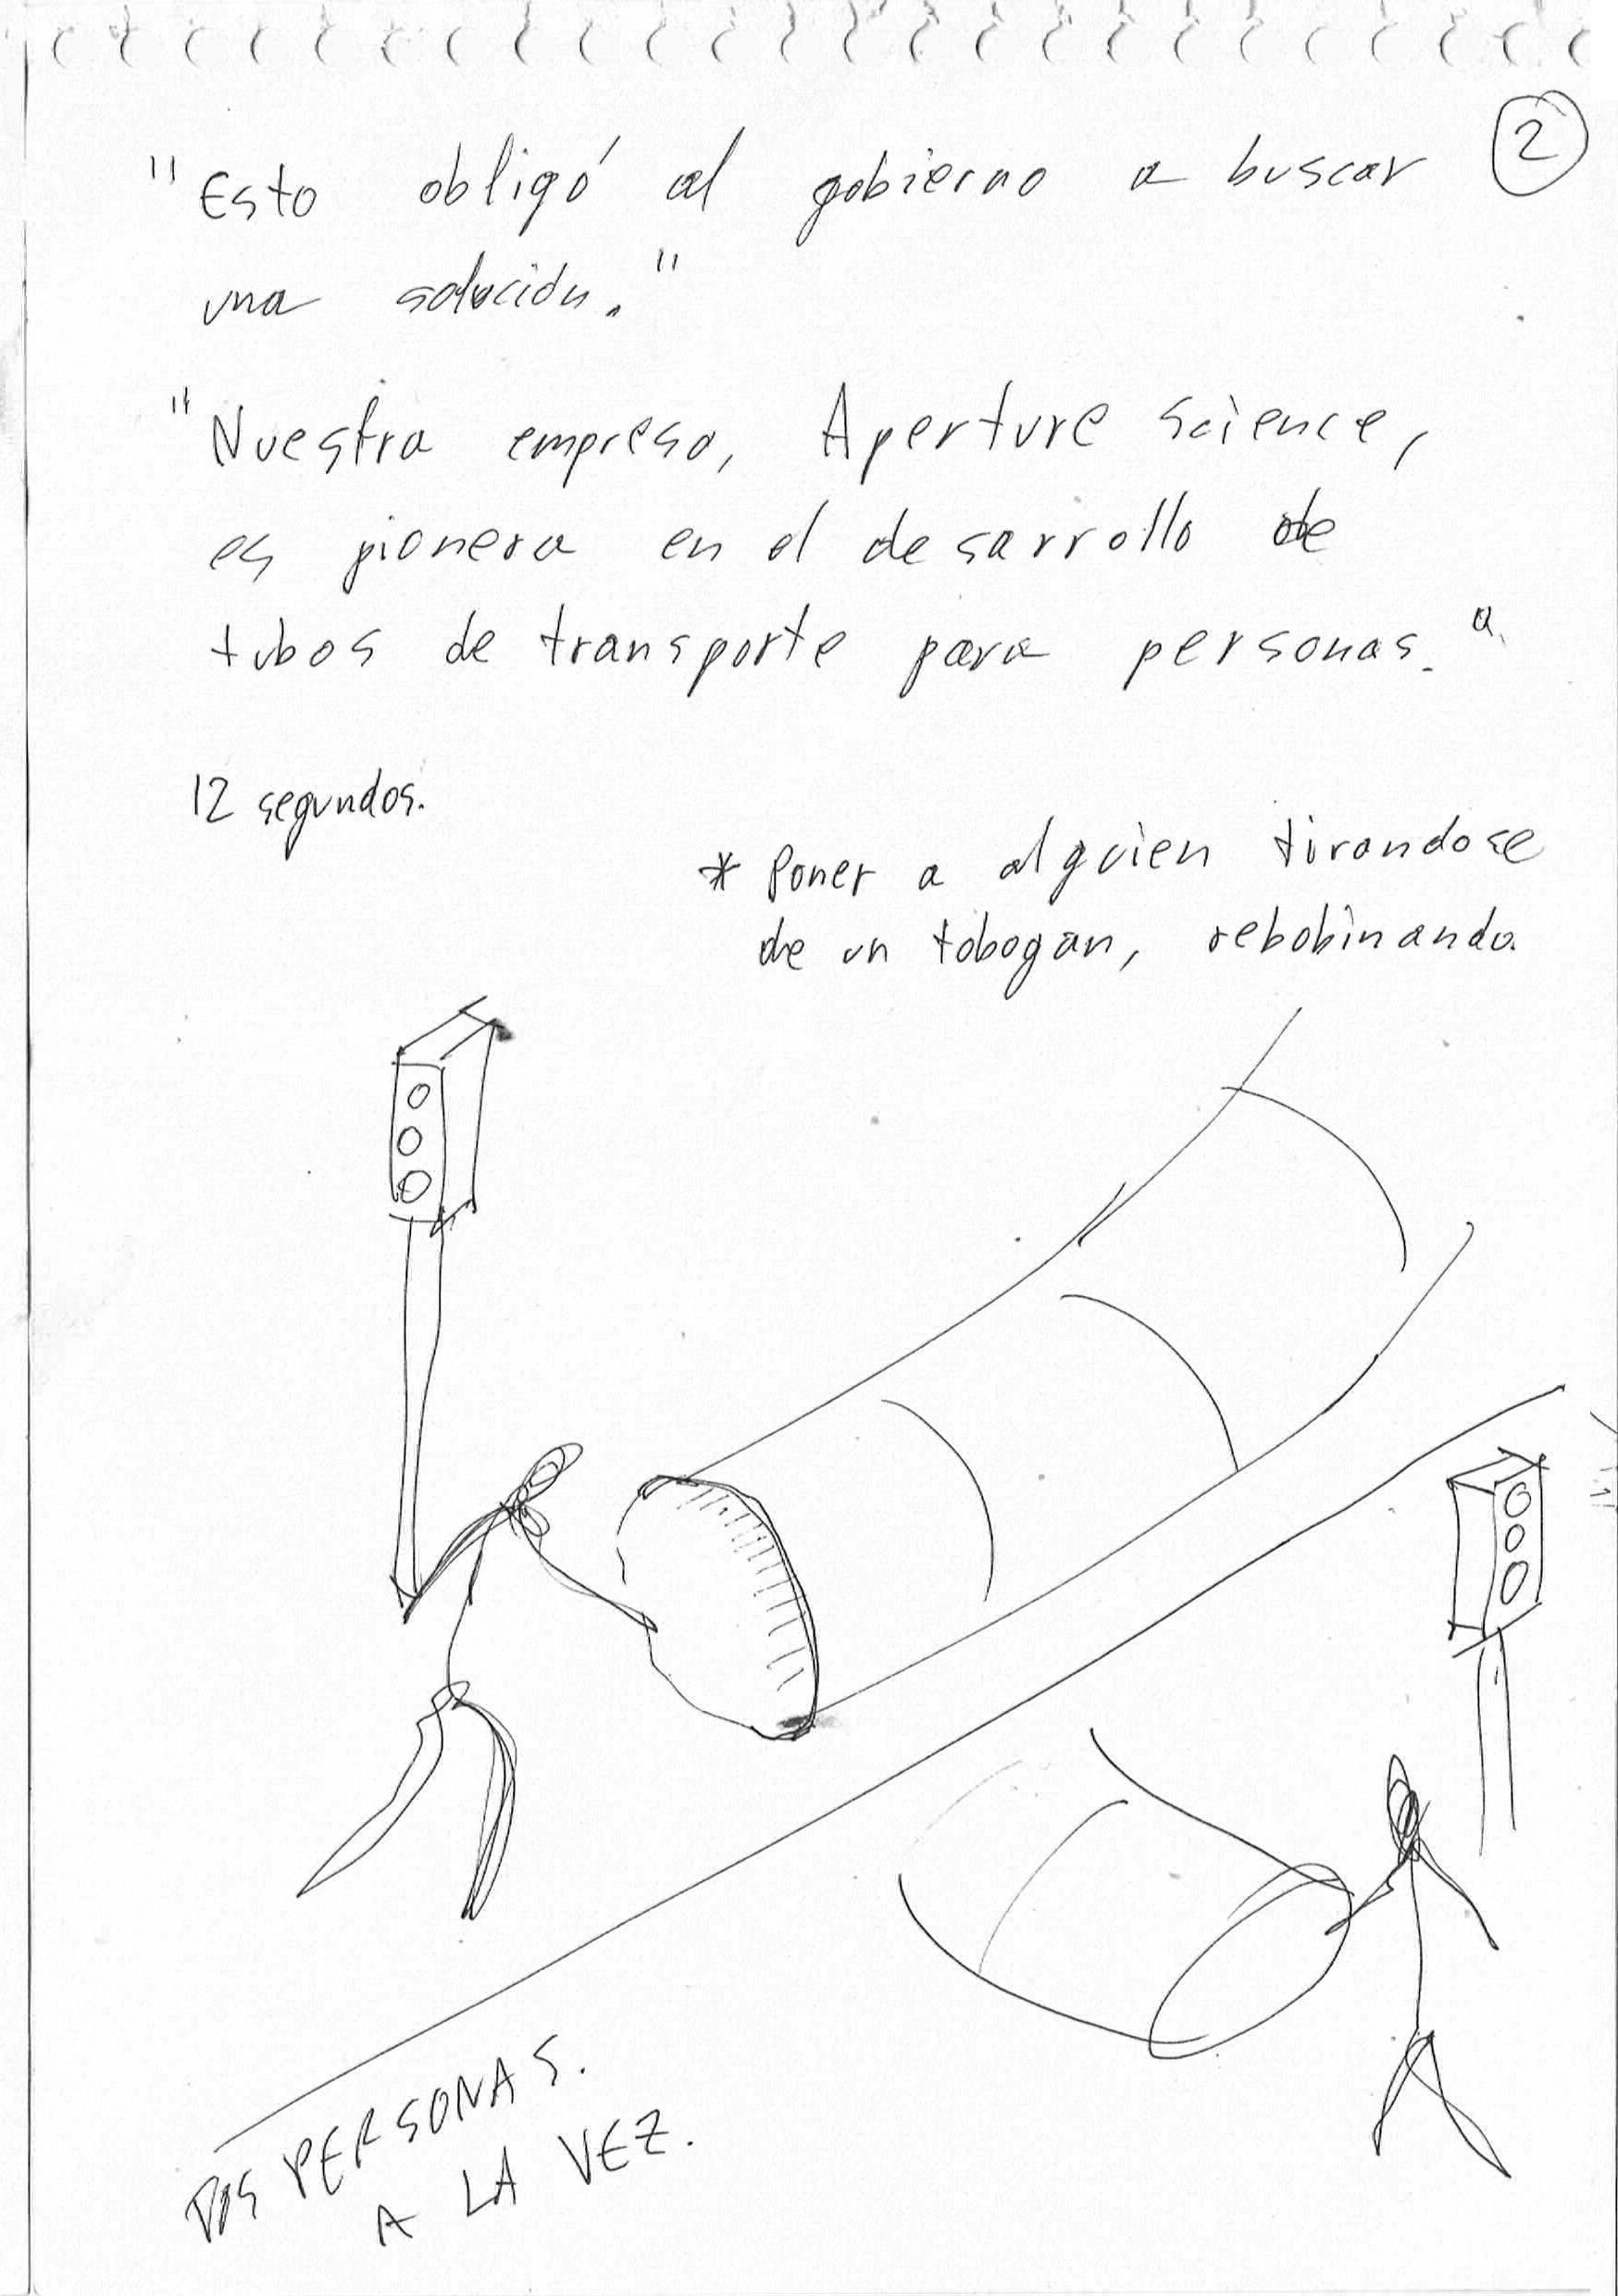 2
"Esto obligó al gobierno a buscar
una solución."
"Nuestra empresa, Aperture Science,
es pionera en el desarrollo de
tubos de transporte para personas."
12 segundos.
* Poner a alguien tirandose
de un tobogan, rebobinando.
DOS PERSONAS.
A LA VEZ.